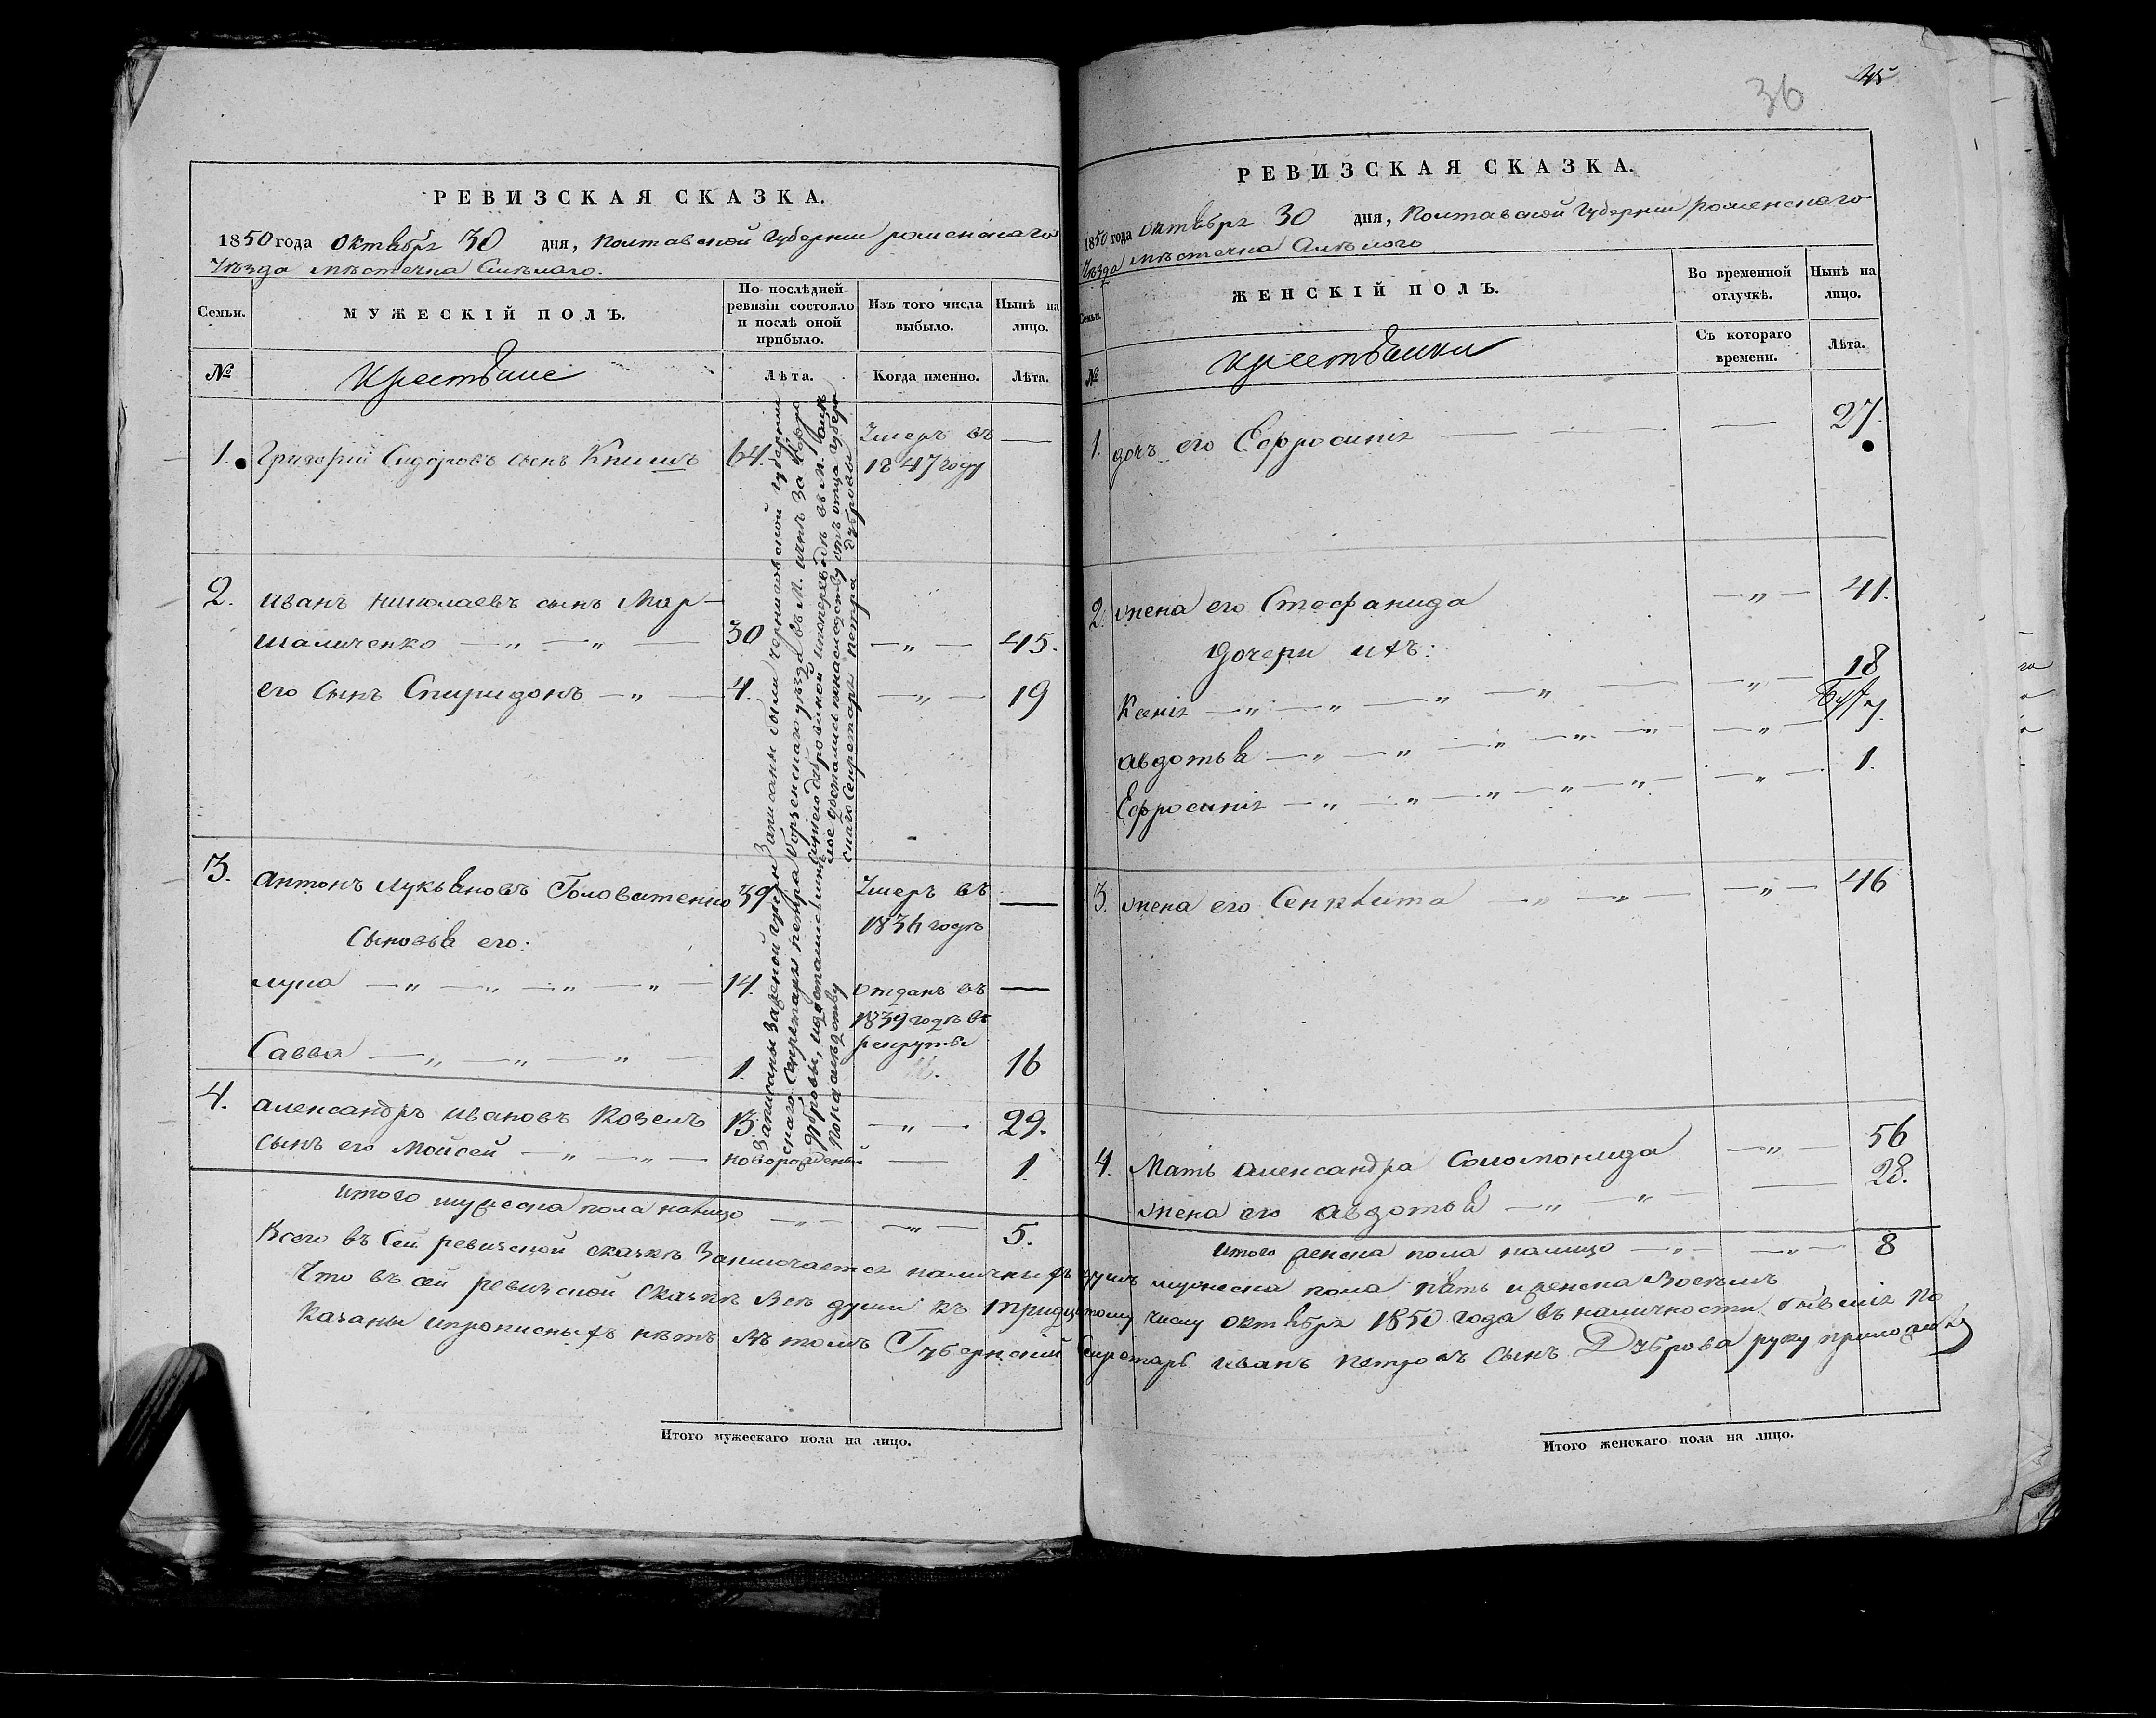 РЕВИЗСКАЯ СКАЗКА.
1850 года октября 30 дня, Полтавской Губернии роменскаго
Уѣзда мѣстечка Смѣлаго.
Семьи.
МУЖЕСКІЙ ПОЛЪ.
По послѣдней ревизіи состояло и послѣ оной прибыло.
Изъ того числа выбыло.
Нынѣ на лицо.
№
Крестьяне
Лѣта.
Когда именно.
Лѣта.
1. Григорій Сидоровъ сынъ Книшъ 64. Умеръ въ —
1847 году
2. Иванъ Николаевъ сынъ Мар-
шаличенко — „ — „ — 30 — „ — 45.
его сынъ Спиридонъ — „ — 4. — „ — 19
3. Антонъ Лукьяновъ Головатенко 39. Умеръ въ —
1836 годѣ
Сыновья его:
Лука — „ — „ — „ — „ — 14. отданъ въ —
1839 годѣ въ
рекруты
Савва — „ — „ — „ — 1. 16
4. Александръ Ивановъ Козелъ 13. — „ — 29.
сынъ его Мойсей — „ — „ — новорожденый — 1.
Записаны были черниговской губерніи
Борзенскаго уѣзда въ М. Ичнѣ за
скаго Секретаря Петра Дубровы
итого мужеска пола налицо — „ — — „ — 5.
Всего въ сей ревизской сказкѣ Заключается наличныхъ душъ мужеска пола пять и женска Восемъ
Что въ сей ревизской Сказкѣ Всѣ души къ тридцатому числу октября 1850 года въ наличности бывшія по
казаны и прописныхъ нѣтъ Въ томъ Губернскій Секретарь Иванъ Петровъ сынъ Дуброва руку приложилъ
Итого мужескаго пола на лицо.
36
45
РЕВИЗСКАЯ СКАЗКА.
1850 года октября 30 дня, Полтавской Губерніи роменскаго
Уѣзда мѣстечка Смѣлого
Семьи.
ЖЕНСКІЙ ПОЛЪ.
Во временной отлучкѣ.
Нынѣ на лицо.
№
крестьянки
Съ котораго времени.
Лѣта.
1. дочь его Ефросинія — — — — 27.
2. жена его Стефанида — „ — 41.
Дочери ихъ:
Ксенія — „ — „ — „ — „ — — „ — 18
Авдотья — „ — „ — „ — „ — „ — — „ — 7.
Ефросинія — „ — „ — „ — „ — „ — — „ — 1.
3. жена его Сенклита — „ — „ — — „ — 46
4. Мать Александра Соломонида — „ — 56
жена его Авдотья — „ — „ — — 28.
итого женска пола налицо — „ — — „ — 8
Итого женскаго пола на лицо.